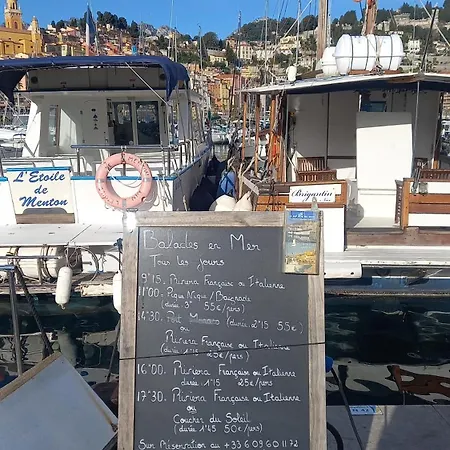 L'Etoile
de Menton
Brigantin
Balades en Mer
Tous les jours
9h15. Riviera Française ou Italienne
11h00. (durée 1h15 25€/pers)
Pique Nique / Baignade
14h30. Port Monaco (durée 2h15 55€/pers)
ou
Riviera Française ou Italienne
(durée 1h15 25€/pers)
16h00. Riviera Française ou Italienne
durée 1h15 25€/pers
17h30. Riviera Française ou Italienne
ou
Coucher du Soleil
(durée 1h45 50€/pers)
Sur Réservation au +33 6 09 60 11 72